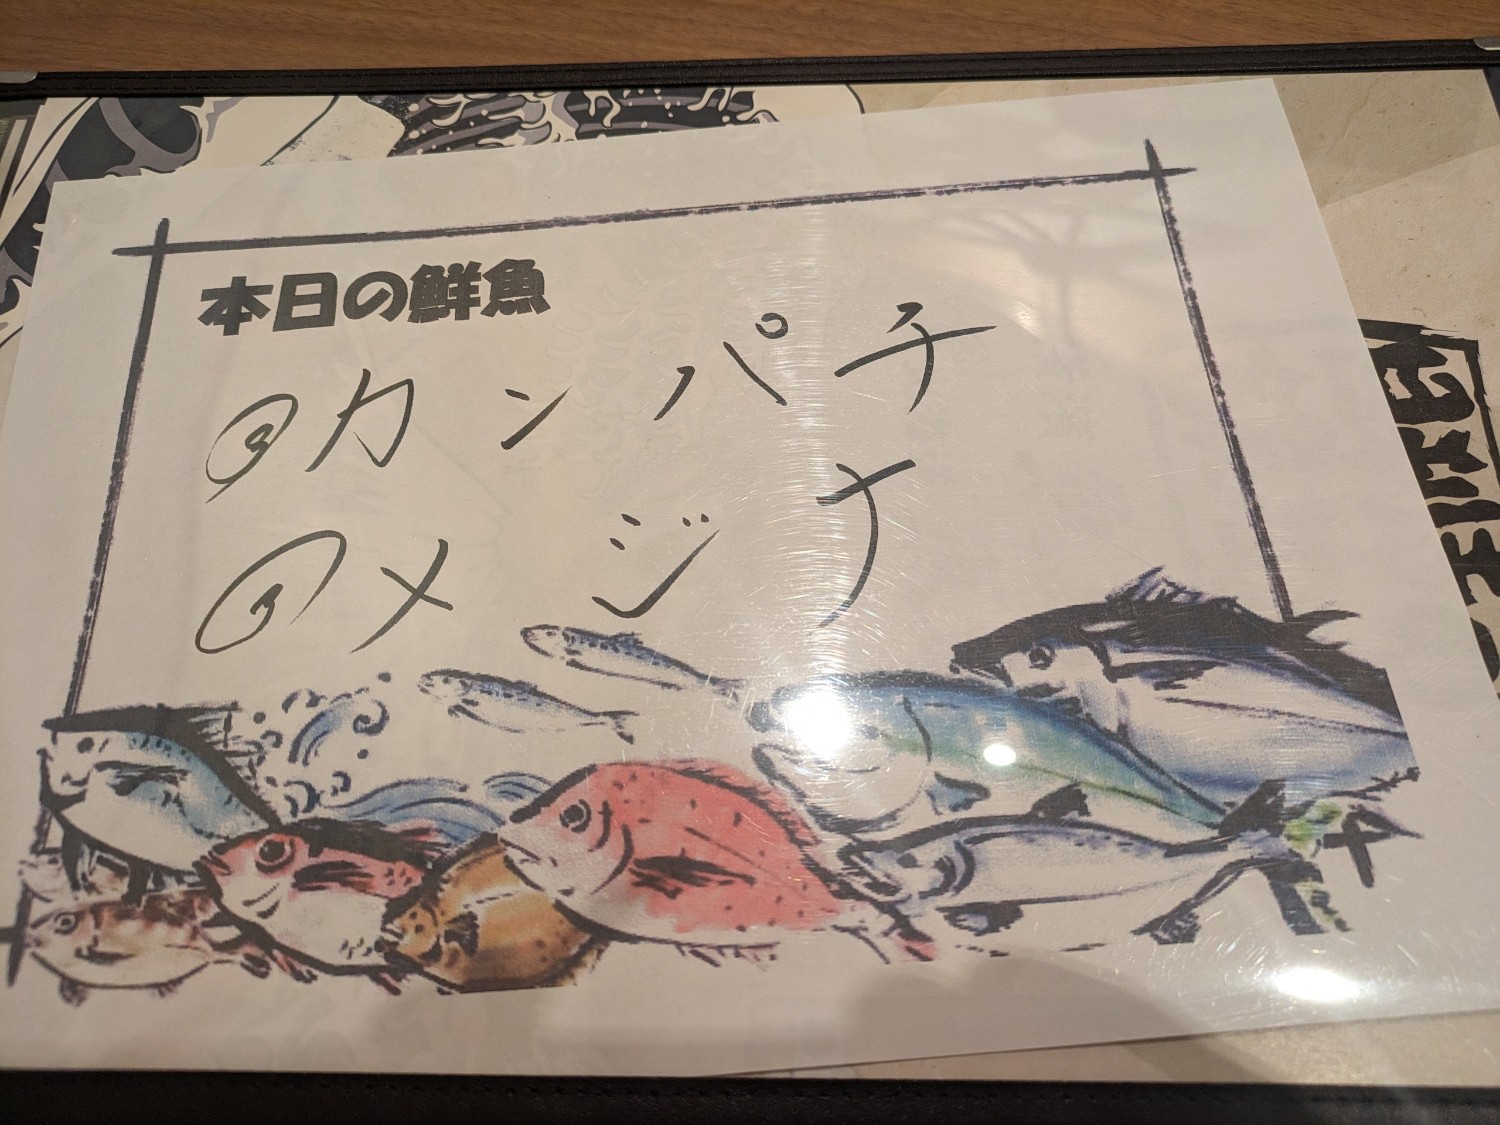 本日の鮮魚
◎カンパチ
◎メジナ